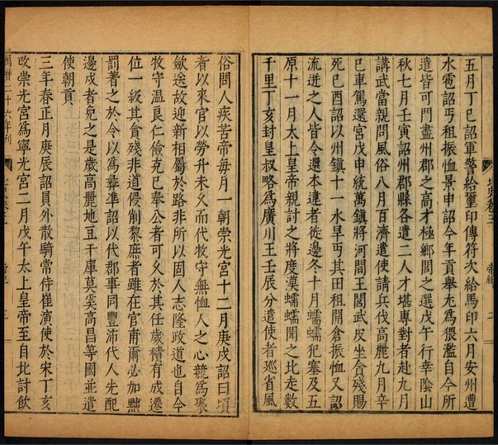 五月丁巳詔軍警給璽印傳符次給馬印六月安州遭
水雹詔丐租振恤景申詔今年貢舉尤為猥濫自今所
遣皆可門盡州郡之高才極鄉閭之選戊午行幸陰山
秋七月壬寅詔州郡縣各遣二人才堪專對者赴九月
講武當親問風俗八月百濟遣使請兵伐高麗九月辛
巳車駕還宮戊申統萬鎮將河間王閭武皮坐貪殘賜
死己酉詔以州鎮十一水旱丐其田租開倉振恤又詔
流迸之人皆令還本違者徙邊冬十月蠕蠕犯塞及五
原十一月太上皇親討之將度漠蠕蠕聞之北走數
千里丁亥封皇叔略為廣川王壬辰分遣使者巡省風
俗問人疾苦帝每月一朝崇光宮十二月庚戌詔曰頃
者以來官以勞升未久而代牧守無恤人之心競為聚
斂送故迎新相屬於路非所以固人志隆政道也自今
牧守溫良仁儉克己奉公者可久於其任歲積有成遷
位一級其貪殘非道侵削黎庶者雖在官甫爾必加黜
罰著之於令以為彝準詔以代郡事同豐沛代人先配
邊戍者免之是歲高麗地豆于庫莫奚高昌等國並遣
使朝貢
三年春正月庚辰詔員外散騎常侍崔演使於宋丁亥
改崇光宮為寧光宮二月戊午太上皇帝至自北討飲